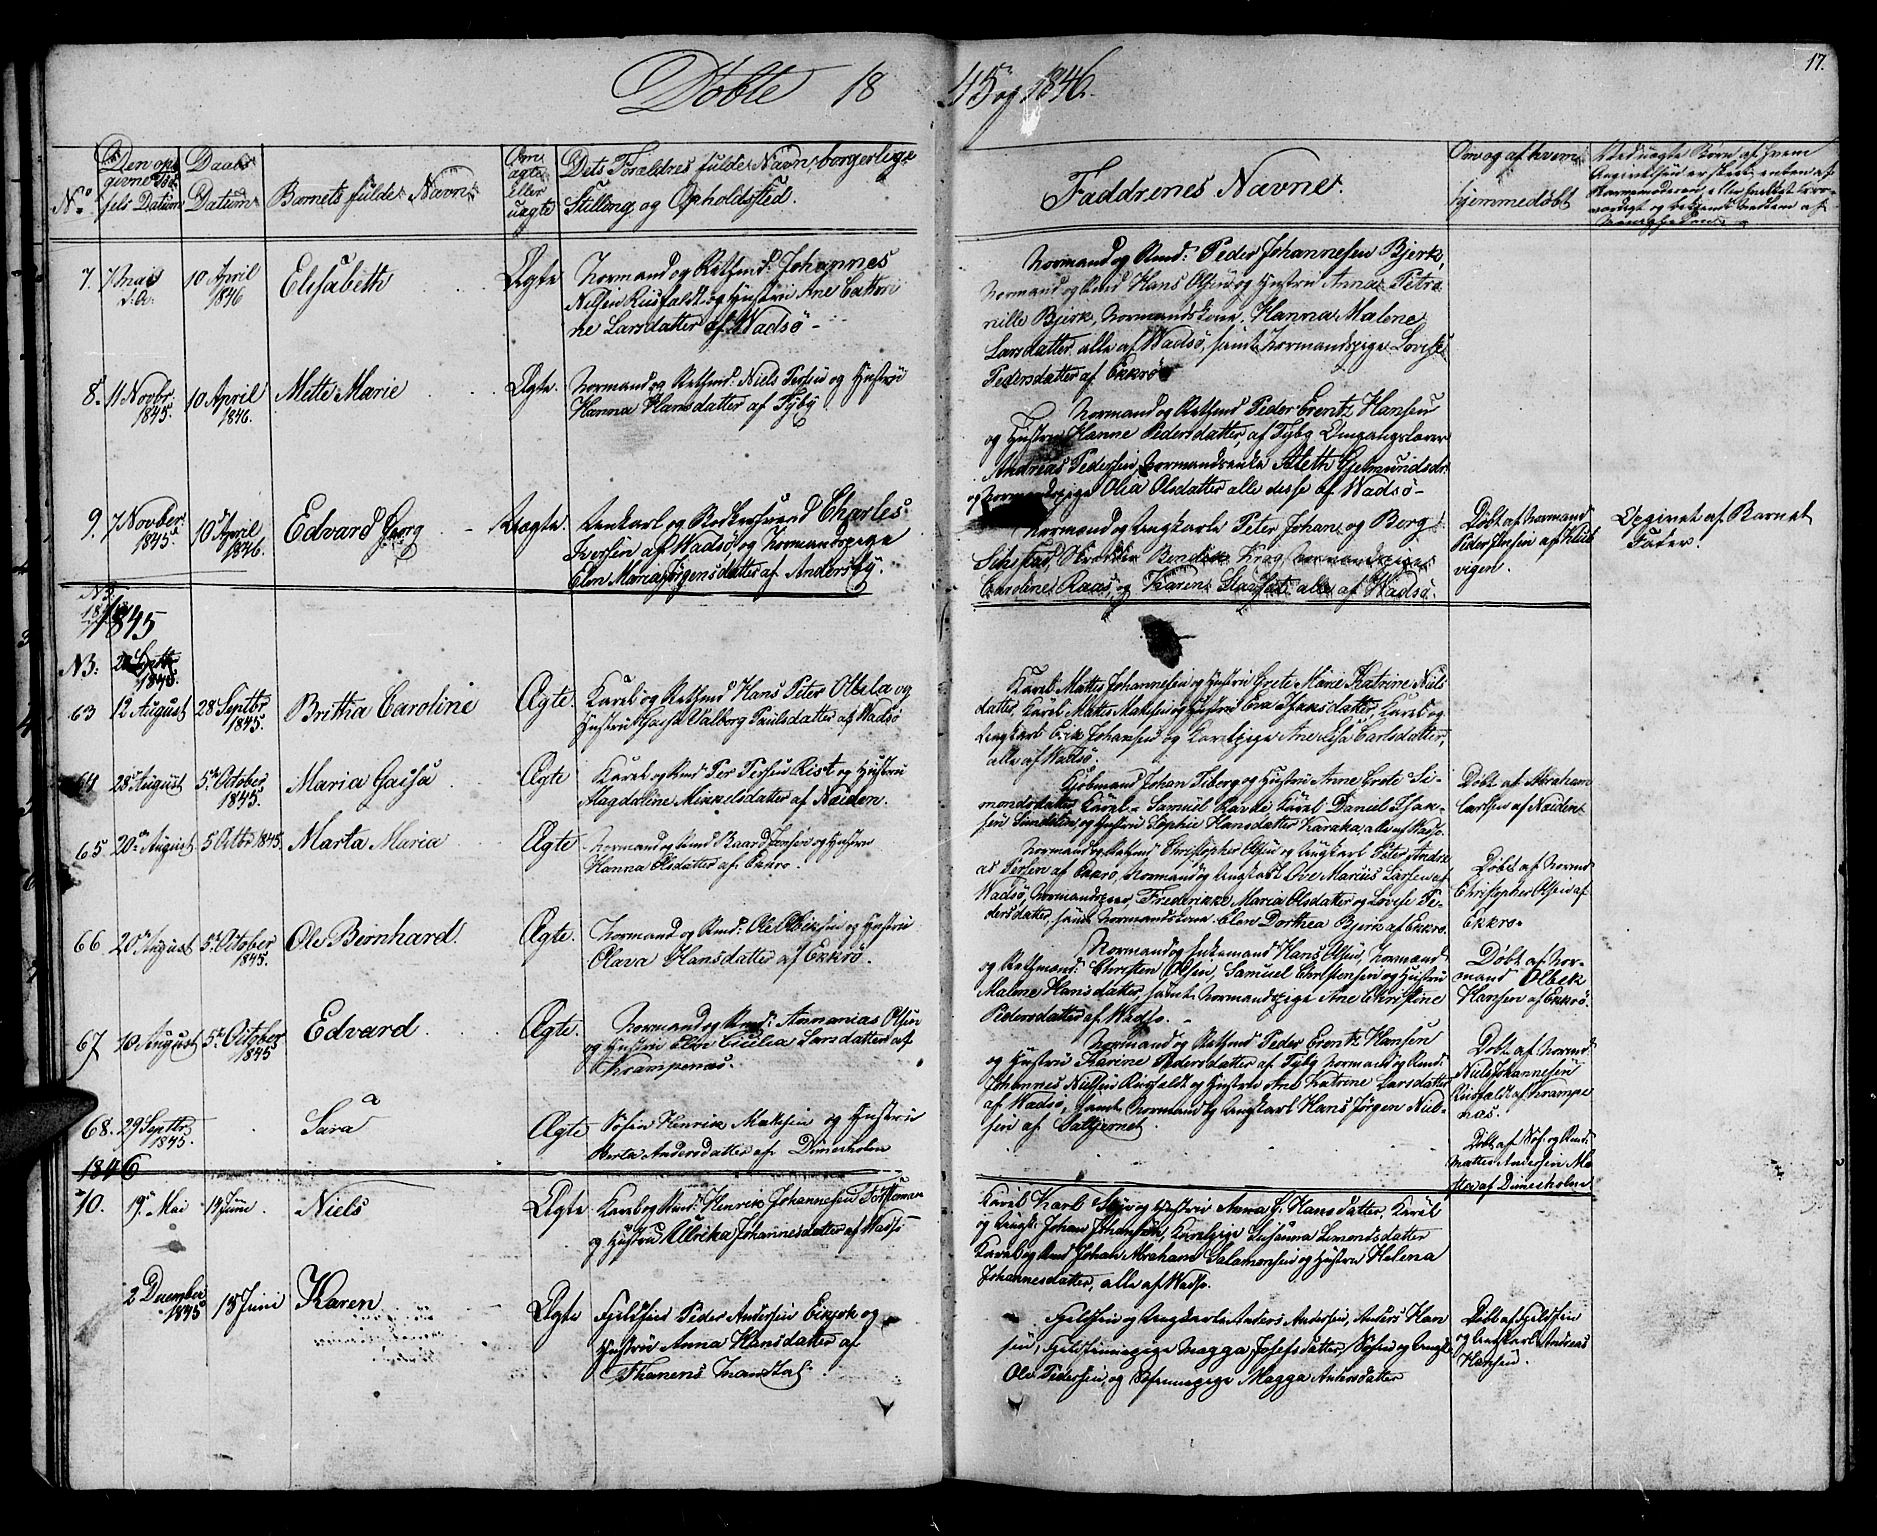 17.
Döbte 1845 og 1846.
No.
Den opgivne Fødsels Datum
Daabs Datum
Barnets fulde Navn
Om ægte Eller uægte
Dets Forældres fulde Navn, borgerlige Stilling og Opholdssted.
Faddrenes Navne.
Om og af hvem hjemmedøbt
7.
7 Mai d.A.
10 April 1846
Elisabeth
Ægte
Normand og Retsmd: Johannes
Nilsen Rusfaldt og Hustru Ane Cathri
ne Larsdatter af Wadsö
Normand og Rmd: Peder Johannesen Bjerk,
Normand og Rmd Hans Olsen og Hustru Anna Petro
nille Bjerk, Normandskone Hanna Malene
Larsdatter alle af Wadsö, samt Normandspige Lovise
Pedersdatter af Ekkrö
8.
11 Novbr. 1845.
10 April 1846.
Mette Marie
Ægte
Normand og Retsmd: Niels Persen og Hustru
Hanna Hansdatter af Tyby
Normand og Retsmd Peder Erentz Hansen
og Hustru Hanne Pedersdatter, af Tyby Omgangslærer
Andreas Pedersen, Normandsenke Aleth Gjetmundsdr
og Normandspige Olia Olsdatter alle disse af Wadsö
9.
7 Novber. 1845
10 April 1846.
Edvard Georg
Uægte.
Ungkarl og Bødkersvend Charles
Iversen af Wadsö og Normandspige
Elen Maria Jörgensdatter af Andersby.
Normand og Ungkarle Peter Johan og Berg
Caroline Raas, og Karen alle af Wadsö.
Döbt af Normand
Peder Jensen af Klub
vigen.
Opgivet af Barnets
Fader.
1845
N3:
1845
63
12 August
28 Septbr 1845.
Britha Caroline
Ægte.
Karel og Retsmd Hans Peter Olbila og
Hustru Valborg Paulsdatter af Wadsö
Karel Mattis Johannesen og Hustru Grete Marie Katrine Niels
datter, Karel Mattis Mattisen og Hustru Eva Isaksdatter, Karel og
Ungkarl Erik Johansen og Karelpige Ane Lisa Carlsdatter,
alle af Wadsö.
64
28 August
5te October 1845.
Maria Gaisa
Ægte
Karel og Rmd Per Persen Rist og Hustru
Magdaline Mikkelsdatter af Naiden.
Kjöbmand Johan Fiberg og Hustru Anne Grete Si-
mondsdatter, Karel Samuel Karel Daniel Isak-
sen og Hustru Sophie Hansdatter Karaka, alle af Wadsö.
Döbt af Abraham
Carlsen af Naiden
65
20de August
5 Octbr 1845.
Marta Maria
Ægte
Normand og Rmd Baard Jensen og Hustru
Hanna Olsdatter af Ekkrö.
Normand og Retsmd Christopher Olsen og Ungkarl Peter Andre
as Persen af Ekkrö, Normand og Ungkarl Ove Marius Larsen af
Wadsö, Normandspiger Frederikke Maria Olsdatter og Lovise Pe-
dersdatter, samt Normandskone Elen Dorthea Bjerk af Ekkrö.
Döbt af Normd
Christopher Olsen af
Ekkrö.
66
20de August
5te October 1845.
Ole Bernhard.
Ægte.
Normand og Rmd: Ole Olbeksen og Hustru
Olava Hansdatter af Ekkrö.
Normand og Enkemand Hans Olsen, Normand
og Retsmand: Christen Olsen, Samuel Christensen og Hustru
Malene Hansdatter, samt Normandspige Ane Christine
Pedersdatter af Wadsö.
Döbt af Nor-
mand Olbek
Hansen af Ekkrö.
67
18 August
5te October 1845
Edvard
Ægte.
Normand og Rmd: Annanias Olsen
og Hustru Elen Cicilia Larsdatter af
Krampenæs.
Normand og Retsmd Peder Erentz Hansen
og Hustru Karine Pedersdatter af Tyby Normand og Rmd:
Johannes Nielsen Rusfaldt og Hustru Ane Katrine Larsdatter
af Wadsö, samt Normand og Ungkarl Hans Jörgen Niel-
sen af Saltjernet
Döbt af Normd
Niels Johannesen
Rusfaldt af Krampe
næs.
68.
29 Septbr 1845.
Sara
Ægte
Söfin Henrik Mathisen og Hustru
Berta Andersdatter af Dimesholm
Döbt af Söf: og Rmd:
Mattis Andersen Ma
af Dimesholm
1846
10.
19de Mai
14 Juni
Niels
Ægte
Karel og Rmd: Henrik Johannesen
og Hustru Ulrika Johannesdatter af Wadsö
Karel Karl og Hustru Anna P. Hansdatter, Karel
og Ungk: Johan Johansen, Karelpige Susanna Simondsdatter
Karel og Rmd Johan Abraham Salamonsen og Hustru Helena
Johannesdatter, alle af Wadsö.
2 December 1845
15 Juni
Karen
Ægte
Fjeldfin Peder Andersen Ekjerk og
Hustru Anna Hansdatter af
Thanens
Fjeldfin og Ungkarle Anders Andersen, Anders Han
sen, Fjeldfinnepige Magga Josefsdatter, Söfin og Ungk:
Ole Pedersen, og Söfinnepige Magga Andersdatter
Döbt af Fjeldfin
og Ungkarl Andreas
Hansen.